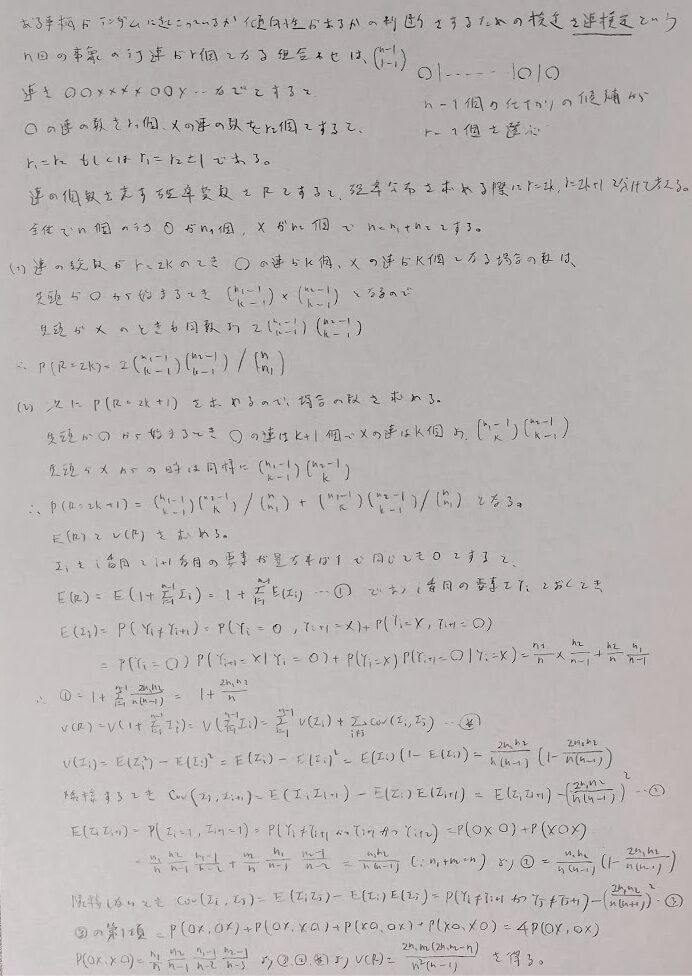 ある事柄がランダムに起こっているか傾向性があるかの判断をするための検定を連検定という
n回の事象の列連がr個となる組合わせは、(n-1 r-1)
○|-----|○|○
連を○○××××○○×・・・などとすると、
n-1個の仕切りの候補から
r-1個を選ぶ
○の連の数をr₁個、×の連の数をr₂個とすると、
r₁=r₂ もしくは r₁=r₂±1 である。
連の個数を表す確率変数をRとすると、確率分布を求める際にr=2k, r=2k+1で分けて考える。
全体でn個の列 ○がn₁個, ×がn₂個で n=n₁+n₂とする。
(1) 連の総数がr=2kのとき ○の連がk個、×の連がk個となる場合の数は、
先頭が○から始まるとき (n₁-1 k-1)×(n₂-1 k-1) となるので
先頭が×のときも同数より 2(n₁-1 k-1)(n₂-1 k-1)
∴ P(R=2k)=2(n₁-1 k-1)(n₂-1 k-1)/(n n₁)
(2) 次に P(R=2k+1) を求めるので、場合の数を求める。
先頭が○から始まるとき ○の連はk+1個で×の連はk個より, (n₁-1 k)(n₂-1 k-1)
先頭が×からの時は同様に (n₁-1 k-1)(n₂-1 k)
∴ P(R=2k+1)=(n₁-1 k-1)(n₂-1 k)/(n n₁)+(n₁-1 k)(n₂-1 k-1)/(n n₁) となる。
E(R)とV(R)を求める。
Iᵢをi番目とi+1番目の要素が異なれば1で同じとき0とすると、
E(R)=E(1+Σᵢ₌₁ⁿ⁻¹Iᵢ)=1+Σᵢ₌₁ⁿ⁻¹E(Iᵢ) …① であり、i番目の要素をYᵢとおくとき
E(Iᵢ)=P(Yᵢ≠Yᵢ₊₁)=P(Yᵢ=○, Yᵢ₊₁=×)+P(Yᵢ=×, Yᵢ₊₁=○)
=P(Yᵢ=○)P(Yᵢ₊₁=×|Yᵢ=○)+P(Yᵢ=×)P(Yᵢ₊₁=○|Yᵢ=×)=n₁/n×n₂/(n-1)+n₂/n n₁/(n-1)
∴ ①=1+Σᵢ₌₁ⁿ⁻¹ 2n₁n₂/n(n-1)=1+2n₁n₂/n
V(R)=V(1+Σᵢ₌₁ⁿ⁻¹Iᵢ)=V(Σᵢ₌₁ⁿ⁻¹Iᵢ)=Σᵢ₌₁ⁿ⁻¹V(Iᵢ)+Σᵢ≠ⱼCov(Iᵢ,Iⱼ) …
V(Iᵢ)=E(Iᵢ²)-E(Iᵢ)²=E(Iᵢ)-E(Iᵢ)²=E(Iᵢ)(1-E(Iᵢ))=2n₁n₂/n(n-1)(1-2n₁n₂/n(n-1))
隣接するとき Cov(Iᵢ,Iᵢ₊₁)=E(IᵢIᵢ₊₁)-E(Iᵢ)E(Iᵢ₊₁)=E(IᵢIᵢ₊₁)-(2n₁n₂/n(n-1))² …②
E(IᵢIᵢ₊₁)=P(Iᵢ=1, Iᵢ₊₁=1)=P(Yᵢ≠Yᵢ₊₁ かつ Yᵢ₊₁≠Yᵢ₊₂)=P(○×○)+P(×○×)
=n₁/n n₂/(n-1) (n₁-1)/(n-2)+n₂/n n₁/(n-1) (n₂-1)/(n-2)=n₁n₂/n(n-1) (∵n₁+n₂=n) より ②=n₁n₂/n(n-1)(1-2n₁n₂/n(n-1))
隣接しないとき Cov(Iᵢ,Iⱼ)=E(IᵢIⱼ)-E(Iᵢ)E(Iⱼ)=P(Yᵢ≠Yᵢ₊₁ かつ Yⱼ≠Yⱼ₊₁)-(2n₁n₂/n(n-1))² …③
③の第1項=P(○×,○×)+P(○×,×○)+P(×○,○×)+P(×○,×○)=4P(○×,○×)
P(○×,×○)=n₁/n n₂/(n-1) (n₁-1)/(n-2) (n₂-1)/(n-3) より V(R)=2n₁n₂(2n₁n₂-n)/n²(n-1) を得る。